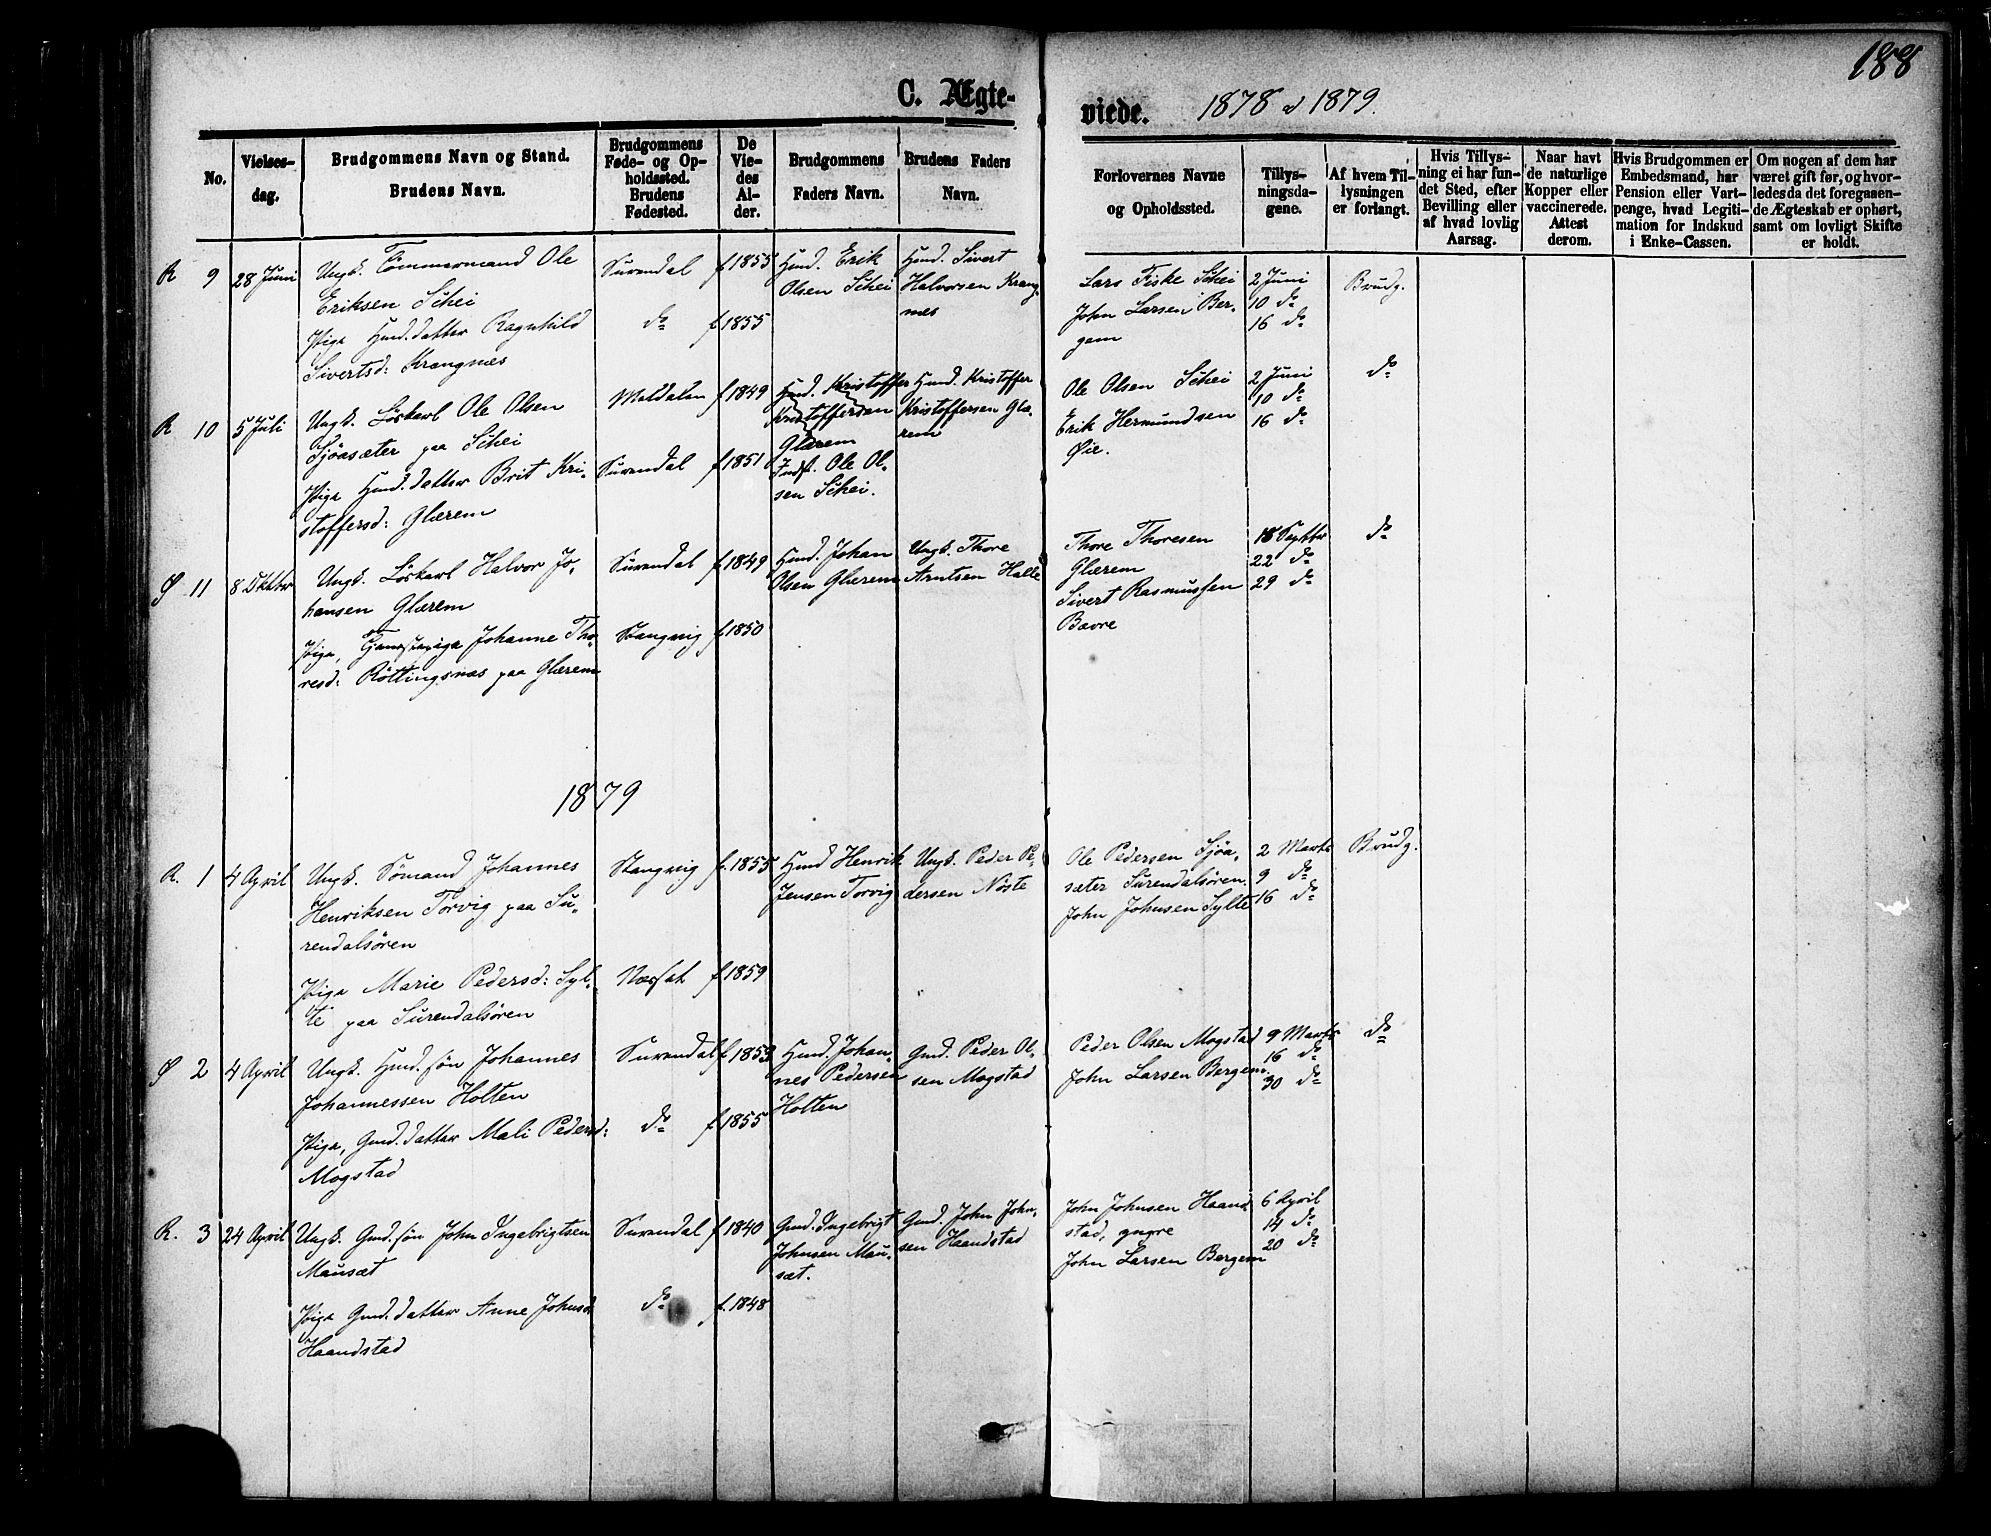 188
C. Ægte-
viede. 1878 & 1879.
No.
Vielses-
dag.
Brudgommens Navn og Stand.
Brudens Navn.
Brudgommens
Føde- og Op-
holdssted.
Brudens
Fødested.
De
Vie-
des
Al-
der.
Brudgommens
Faders Navn.
Brudens Faders
Navn.
Forlovernes Navne
og Opholdssted.
Tillys-
ningsda-
gene.
Af hvem Til-
lysningen
er forlangt.
Hvis Tillys-
ning ei har fun-
det Sted, efter
Bevilling eller
af hvad lovlig
Aarsag.
Naar havt
de naturlige
Kopper eller
vaccinerede.
Attest
derom.
Hvis Brudgommen er
Embedsmand, har
Pension eller Vart-
penge, hvad Legiti-
mation for Indskud
i Enke-Cassen.
Om nogen af dem har
været gift før, og hvor-
ledes da det foregaaen-
de Ægteskab er ophørt,
samt om lovligt Skifte
er holdt.
R 9
28 Juni
Ungk. Tømmermand Ole
Eriksen Schei
Pige Gmd.datter Ragnhild
Sivertsd: Krangnæs
Surendal
do
f 1855
f 1855
Gmd. Erik
Olsen Schei
Gmd. Sivert
Halvorsen Krang-
næs
Lars Fiske Schei
John Larsen Ber-
gem
2 Juni
10 do
16 do
Brudg.
R 10
5 Juli
Ungk. Løskarl Ole Olsen
Sjøasæter paa Schei
Pige Gmd.datter Brit Kri-
stoffersd: Glærem
Meldalen
Surendal
f 1849
f 1851
Gmd. Kristoffer
Kristoffersen
Glærem
Inds. Ole Ol-
sen Schei.
Gmd. Kristoffer
Kristoffersen Glæ-
rem
Ole Olsen Schei
Erik Hermundsen
Øie.
2 Juni
10 do
16 do
do
S 11
8 Oktbr
Ungk. Løskarl Halvor Jo-
hansen Glærem
Pige, Tjenestepige Johanne Tho-
resd: Røttingsnæs paa Glærem
Surendal
Stangvig
f 1849
f 1850
Gmd. Johan
Olsen Glærem
Ungk. Thore
Arntsen Halle
Thore Thoresen
Glærem
Sivert Rasmussen
Bævre
18 Septbr
22 do
29 do
do
1879
R. 1
4 April
Ungk. Sømand Johannes
Henriksen Torvig paa Su-
rendalsøren
Pige Marie Pedersd: Syl-
te paa Surendalsøren
Stangvig
Næsset
f. 1855
f. 1859
Gmd Henrik
Jensen Torvig
Ungk. Peder Pe-
dersen Nøste
Ole Pedersen Sjøa-
sæter Surendalsøren.
John Johnsen Sylte
2 Marts
9 do
16 do
Brudg.
S 2
4 April
Ungk. Gmd.søn Johannes
Johannessen Holten
Pige, Gmd.datter Mali Pedersd:
Mogstad
Surendal
do
f. 1853
f 1855
Gmd. Johan-
nes Pedersen
Holten
Gmd. Peder Ol-
sen Mogstad
Peder Olsen Mogstad
John Larsen Bergem.
9 Marts
16 do
30 do
do
R. 3
24 April
Ungk. Gmd.søn John Ingebrigtsen
Mausæt
Pige Gmd.datter Anne Johnsd
Haandstad
Surendal
do
f 1840
f. 1848
Gmd. Ingebrigt
Johnsen Mau-
sæt.
Gmd. John John-
sen Haandstad
John Johnsen Haand
stad, yngre
John Larsen Bergem
6 April
14 do
20 do